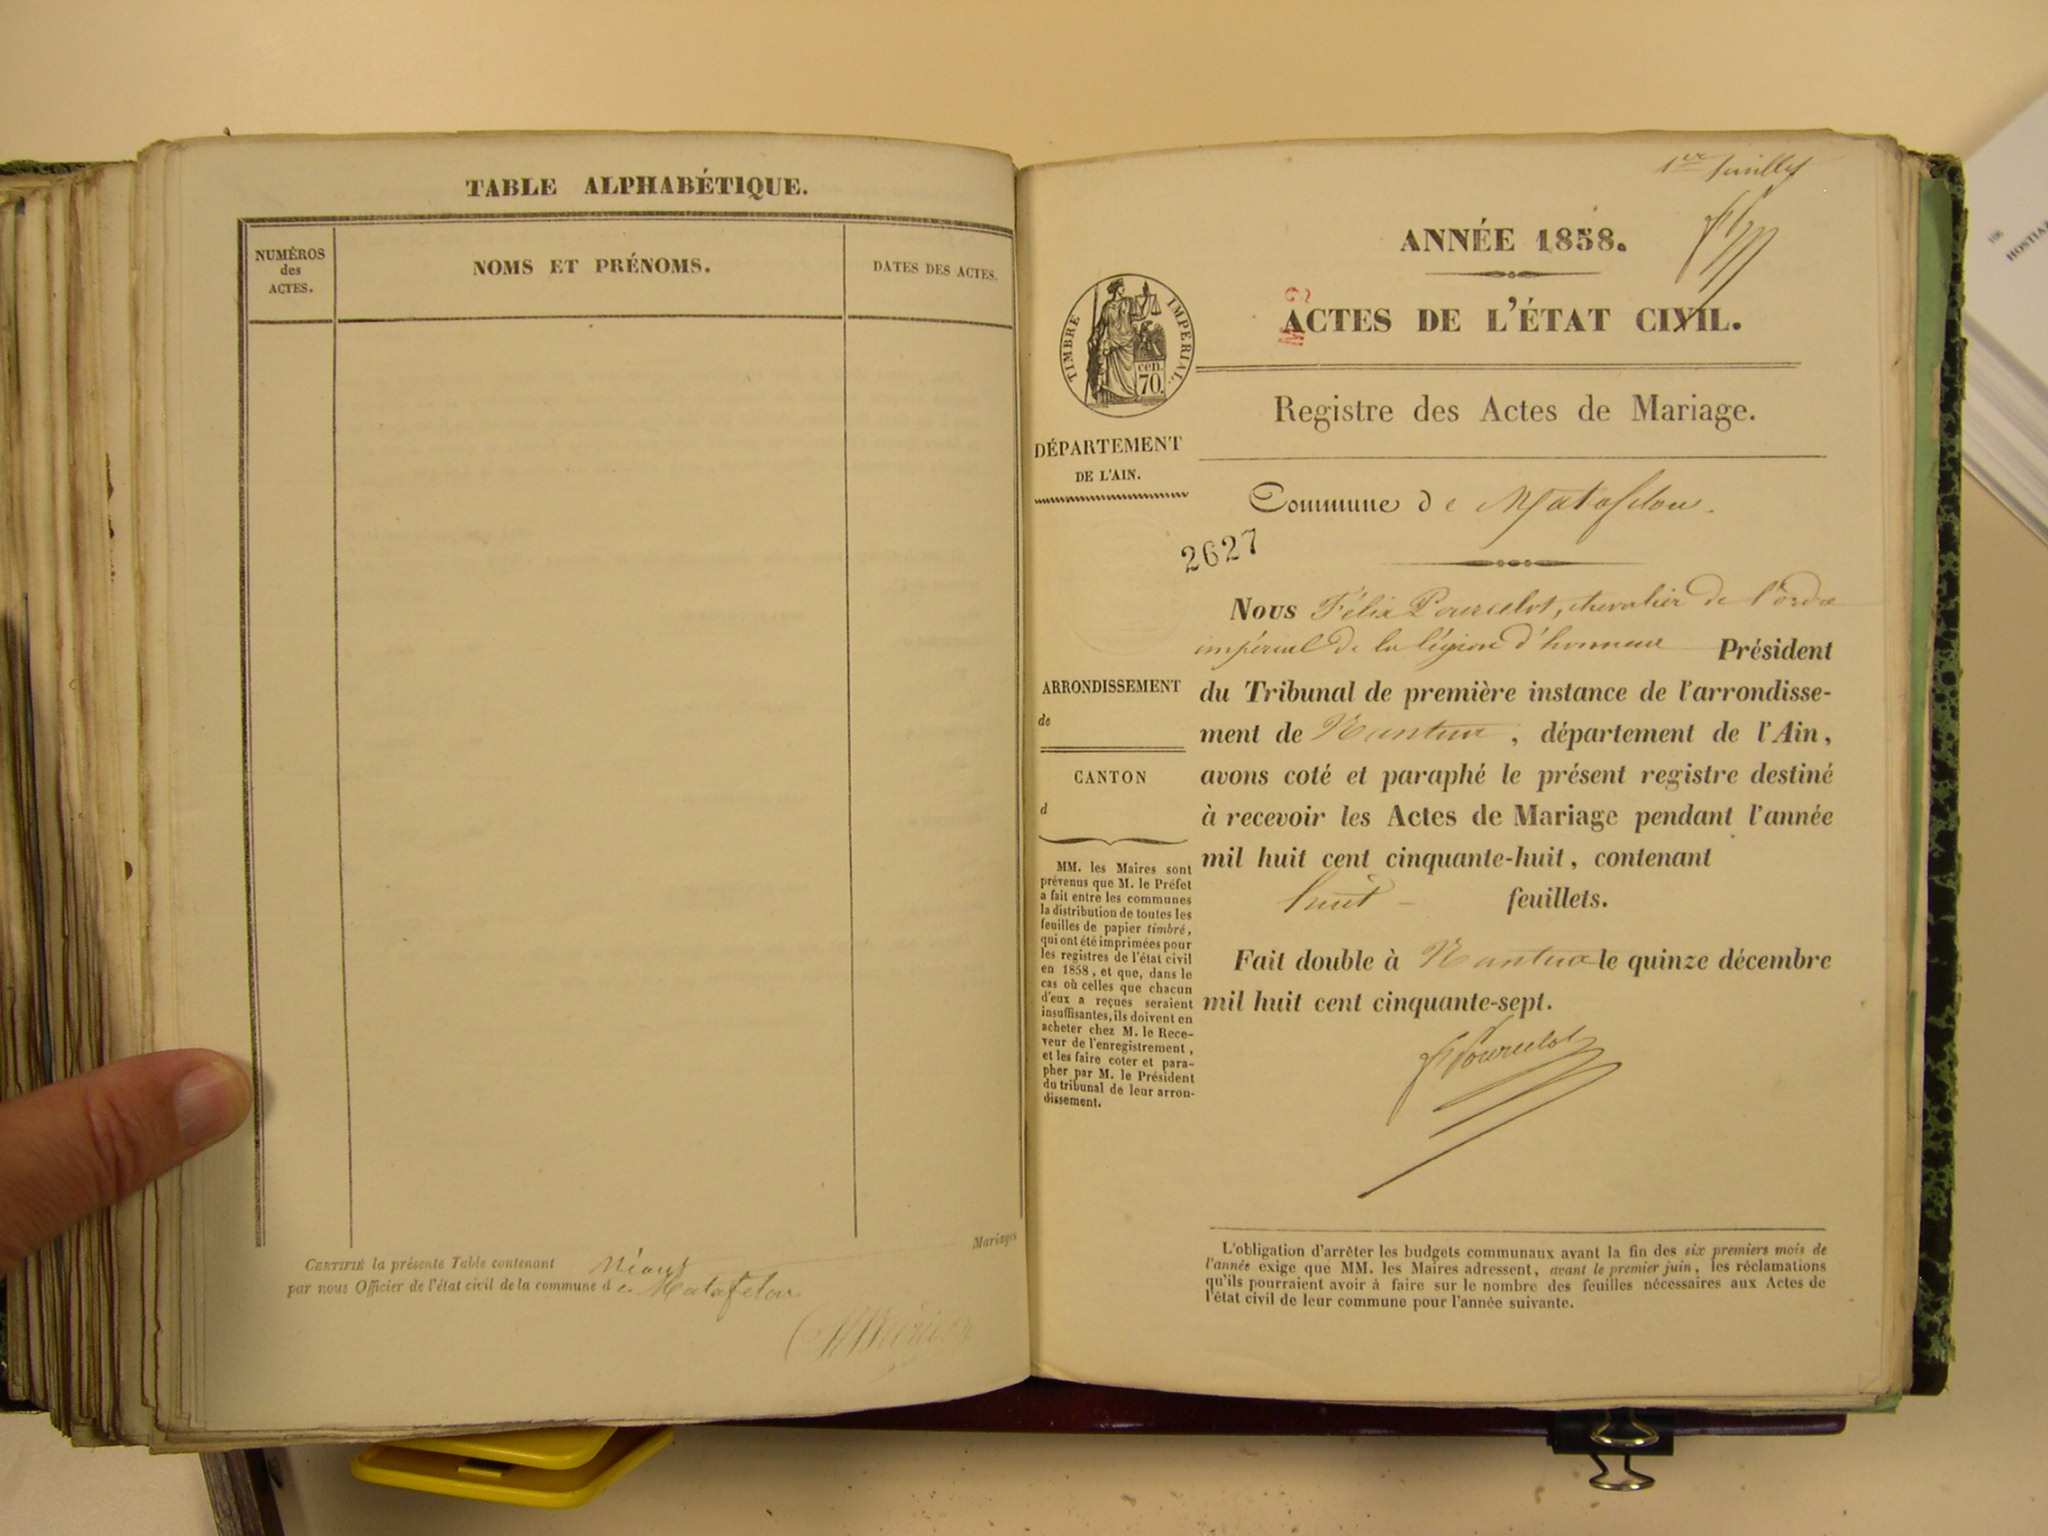 TABLE ALPHABÉTIQUE.
NUMÉROS
des
ACTES.
NOMS ET PRÉNOMS.
DATES DES ACTES.
Mariages
CERTIFIÉ la présente Table contenant Néant
par nous Officier de l'état civil de la commune de Matafelon
1er feuillet
ANNÉE 1858.
ACTES DE L'ÉTAT CIVIL.
TIMBRE IMPÉRIAL.
cen.
70.
Registre des Actes de Mariage.
DÉPARTEMENT
DE L'AIN.
Commune de Matafelon.
2627
Nous Félix Pourcelot, chevalier de l'ordre
impérial de la légion d'honneur Président
du Tribunal de première instance de l'arrondisse-
ment de Nantua, département de l'Ain,
avons coté et paraphé le présent registre destiné
à recevoir les Actes de Mariage pendant l'année
mil huit cent cinquante-huit, contenant
huit - feuillets.
Fait double à Nantua le quinze décembre
mil huit cent cinquante-sept.
Pourcelot
ARRONDISSEMENT
de
CANTON
d
MM. les Maires sont
prévenus que M. le Préfet
a fait entre les communes
la distribution de toutes les
feuilles de papier timbré,
qui ont été imprimées pour
les registres de l'état civil
en 1858, et que, dans le
cas où celles que chacun
d'eux a reçues seraient
insuffisantes, ils doivent en
acheter chez M. le Rece-
veur de l'enregistrement,
et les faire coter et para-
pher par M. le Président
du tribunal de leur arron-
dissement.
L'obligation d'arrêter les budgets communaux avant la fin des six premiers mois de
l'année exige que MM. les Maires adressent, avant le premier juin, les réclamations
qu'ils pourraient avoir à faire sur le nombre des feuilles nécessaires aux Actes de
l'état civil de leur commune pour l'année suivante.